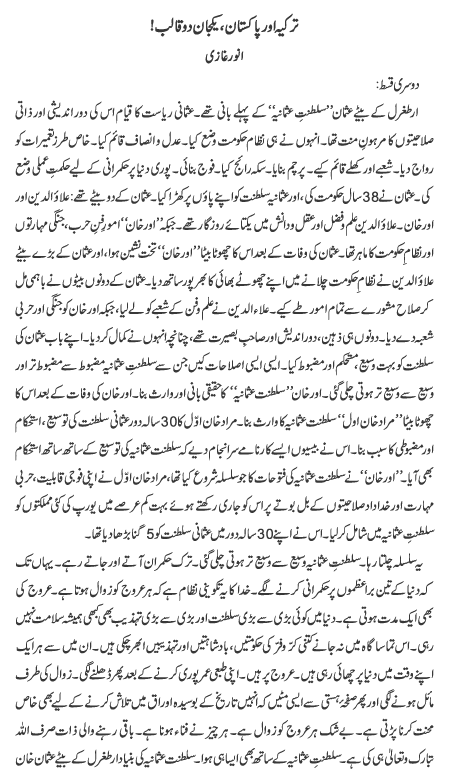 ترکیہ اور پاکستان، یکجان دو قالب!
انور غازی
دوسری قسط:
ارطغرل کے بیٹے عثمان ’’سلطنتِ عثمانیہ‘‘ کے پہلے بانی تھے۔ عثمانی ریاست کا قیام اس کی دور اندیشی اور ذاتی
صلاحیتوں کا مرہونِ منت تھا۔ انہوں نے ہی نظامِ حکومت وضع کیا۔ عدل و انصاف قائم کیا۔ خاص طرز تعمیرات کو
رواج دیا۔ شعبے اور محکمے قائم کیے۔ پرچم بنایا۔ سکہ رائج کیا۔ فوج بنائی۔ پوری دنیا پر حکمرانی کے لیے حکمتِ عملی وضع
کی۔ عثمان نے 38 سال حکومت کی، اور عثمانیہ سلطنت کو اپنے پاؤں پر کھڑا کیا۔ عثمان کے دو بیٹے تھے۔ علاؤ الدین اور
اور خان۔ علاؤ الدین علم و فضل اور عقل و دانش میں یکتائے روزگار تھے۔ جبکہ ’’اور خان‘‘ امور فنِ حرب، جنگی مہارتوں
اور نظامِ حکومت کا ماہر تھا۔ عثمان کی وفات کے بعد اس کا چھوٹا بیٹا ’’اور خان‘‘ تخت نشین ہوا، اور عثمان کے بڑے بیٹے
علاؤ الدین نے نظامِ حکومت چلانے میں اپنے چھوٹے بھائی کا بھرپور ساتھ دیا۔ عثمان کے دونوں بیٹوں نے باہمی مل
کر صلاح مشورے سے تمام امور طے کیے۔ علاء الدین نے علم و فن کے شعبے کو لے لیا، جبکہ اور خان کو جنگی اور حربی
شعبہ دے دیا۔ دونوں ہی ذہین، دور اندیش اور صاحبِ بصیرت تھے، چنانچہ انہوں نے کمال کر دیا۔ اپنے باپ عثمان کی
سلطنت کو بہت وسیع، مستحکم اور مضبوط کیا۔ ایسی ایسی اصلاحات کیں جن سے سلطنتِ عثمانیہ مضبوط سے مضبوط تر اور
وسیع سے وسیع تر ہوتی چلی گئی۔ اور خان ’’سلطنتِ عثمانیہ‘‘ کا حقیقی بانی اور وارث بنا۔ اور خان کی وفات کے بعد اس کا
چھوٹا بیٹا ’’مراد خان اول‘‘ سلطنت عثمانیہ کا وارث بنا۔ مراد خان اوّل کا 30 سالہ دور عثمانی سلطنت کی توسیع، استحکام
اور مضبوطی کا سبب بنا۔ اس نے بیسیوں ایسے کارنامے سرانجام دیے کہ سلطنت عثمانیہ کی توسیع کے ساتھ ساتھ استحکام
بھی آیا۔ ’’اور خان‘‘ نے سلطنت عثمانیہ کی فتوحات کا جو سلسلہ شروع کیا تھا، مراد خان اوّل نے اپنی فوجی قابلیت، حربی
مہارت اور خداداد صلاحیتوں کے بل بوتے پر اس کو جاری رکھتے ہوئے بہت کم عرصے میں یورپ کی کئی مملکتوں کو
سلطنتِ عثمانیہ میں شامل کر لیا۔ اس نے اپنے 30 سالہ دور میں عثمانی سلطنت کو 5 گنا بڑھا دیا تھا۔
یہ سلسلہ چلتا رہا۔ سلطنتِ عثمانیہ وسیع سے وسیع تر ہوتی چلی گئی۔ ترک حکمران آتے اور جاتے رہے۔ یہاں تک
کہ دنیا کے تین براعظموں پر حکمرانی کرنے لگے۔ خدا کا یہ تکوینی نظام ہے کہ ہر عروج کو زوال ہوتا ہے۔ عروج کی
بھی ایک مدت ہوتی ہے۔ دنیا میں کوئی بڑی سے بڑی سلطنت اور بڑی سے بڑی تہذیب بھی کبھی ہمیشہ سلامت نہیں
رہی۔ اس تماشا گاہ میں نہ جانے کتنی کرّ و فر کی حکومتیں، بادشاہتیں اور تہذیبیں ابھر چکی ہیں۔ ان میں سے ہر ایک
اپنے وقت میں دنیا پر چھائی رہی ہیں۔ عروج پر رہیں۔ اپنی طبعی عمر پوری کرنے کے بعد پھر ڈھلنے لگی۔ زوال کی طرف
مائل ہونے لگی اور پھر صفحۂ ہستی سے ایسی مٹیں کہ انہیں تاریخ کے بوسیدہ اوراق میں تلاش کرنے کے لیے بھی خاص
محنت کرنا پڑتی ہے۔ بے شک ہر عروج کو زوال ہے۔ ہر چیز نے فنا ہونا ہے۔ باقی رہنے والی ذات صرف اللہ
تبارک و تعالیٰ ہی کی ہے۔ سلطنتِ عثمانیہ کے ساتھ بھی ایسا ہی ہوا۔ سلطنت عثمانیہ کی بنیاد ارطغرل کے بیٹے عثمان خان